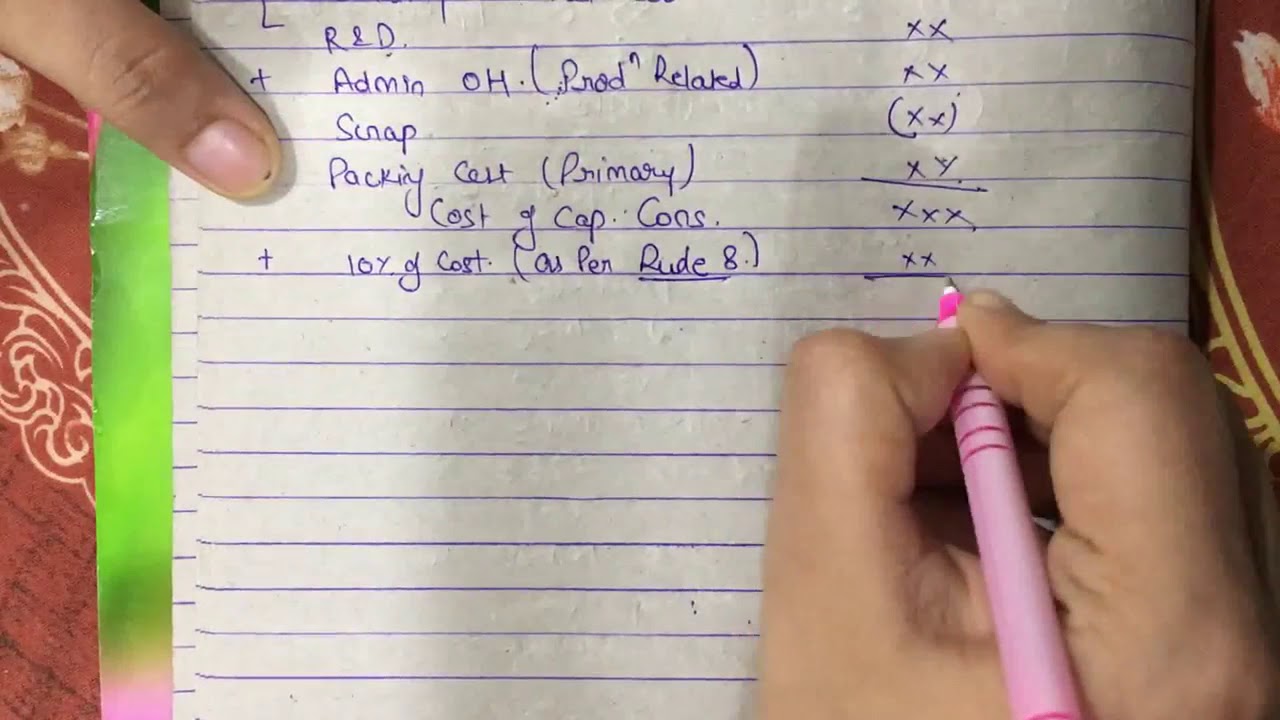 R&D. xx
+ Admin OH. (Prodⁿ Related) xx
Scrap (xx)
Packing Cost (Primary) xx
Cost of Cap. Cons. xxx
+ 10% of Cost. (as Per Rude 8.) xx